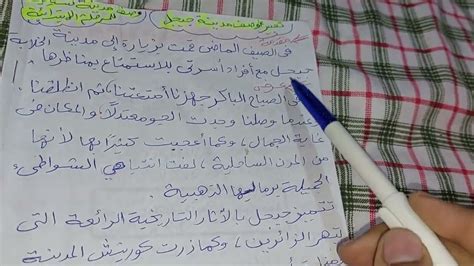 تعبير لوصف مدينة جيجل
وصف مدينة
في الصيف الماضي قمت بزيارة إلى مدينة الخلابة
جيجل مع أفراد أسرتي للاستمتاع بمناظرها.
في الصباح الباكر جهزنا أمتعتنا، ثم انطلقنا
عندما وصلنا وجدت الجو معتدلًا، والمكان في
غاية الجمال، وكما أعجبت كثيرا بها لأنها
من المدن الساحلية، لفت انتباهي الشواطئ
الجميلة برمالها الذهبية.
تتميز جيجل بالآثار التاريخية الرائعة التي
تبهر الزائرين، وكما زرت كورنيش المدينة